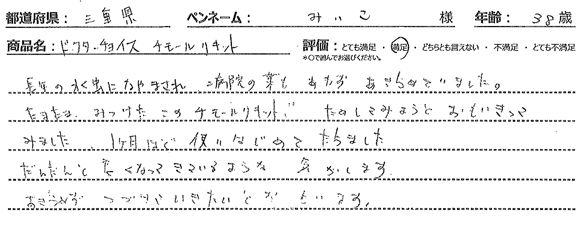 都道府県： 三重県 ペンネーム： みぃこ 様 年齢： 38歳
商品名：ドクターチョイス チモールリキット 評価：とても満足・満足・どちらとも言えない・不満足・とても不満足
*〇で囲んでお選びください。
長年の水虫になやまされ、病院の薬も きかず あきらめていました。
たまたま、みつけた このチモールリキット！ ためしてみようと おもいきって
みました。 1ヶ月ほど 使いはじめて たちました
だんだんと 良くなってきているような 気がします。
あきらめず つづけていきたいと 思います。